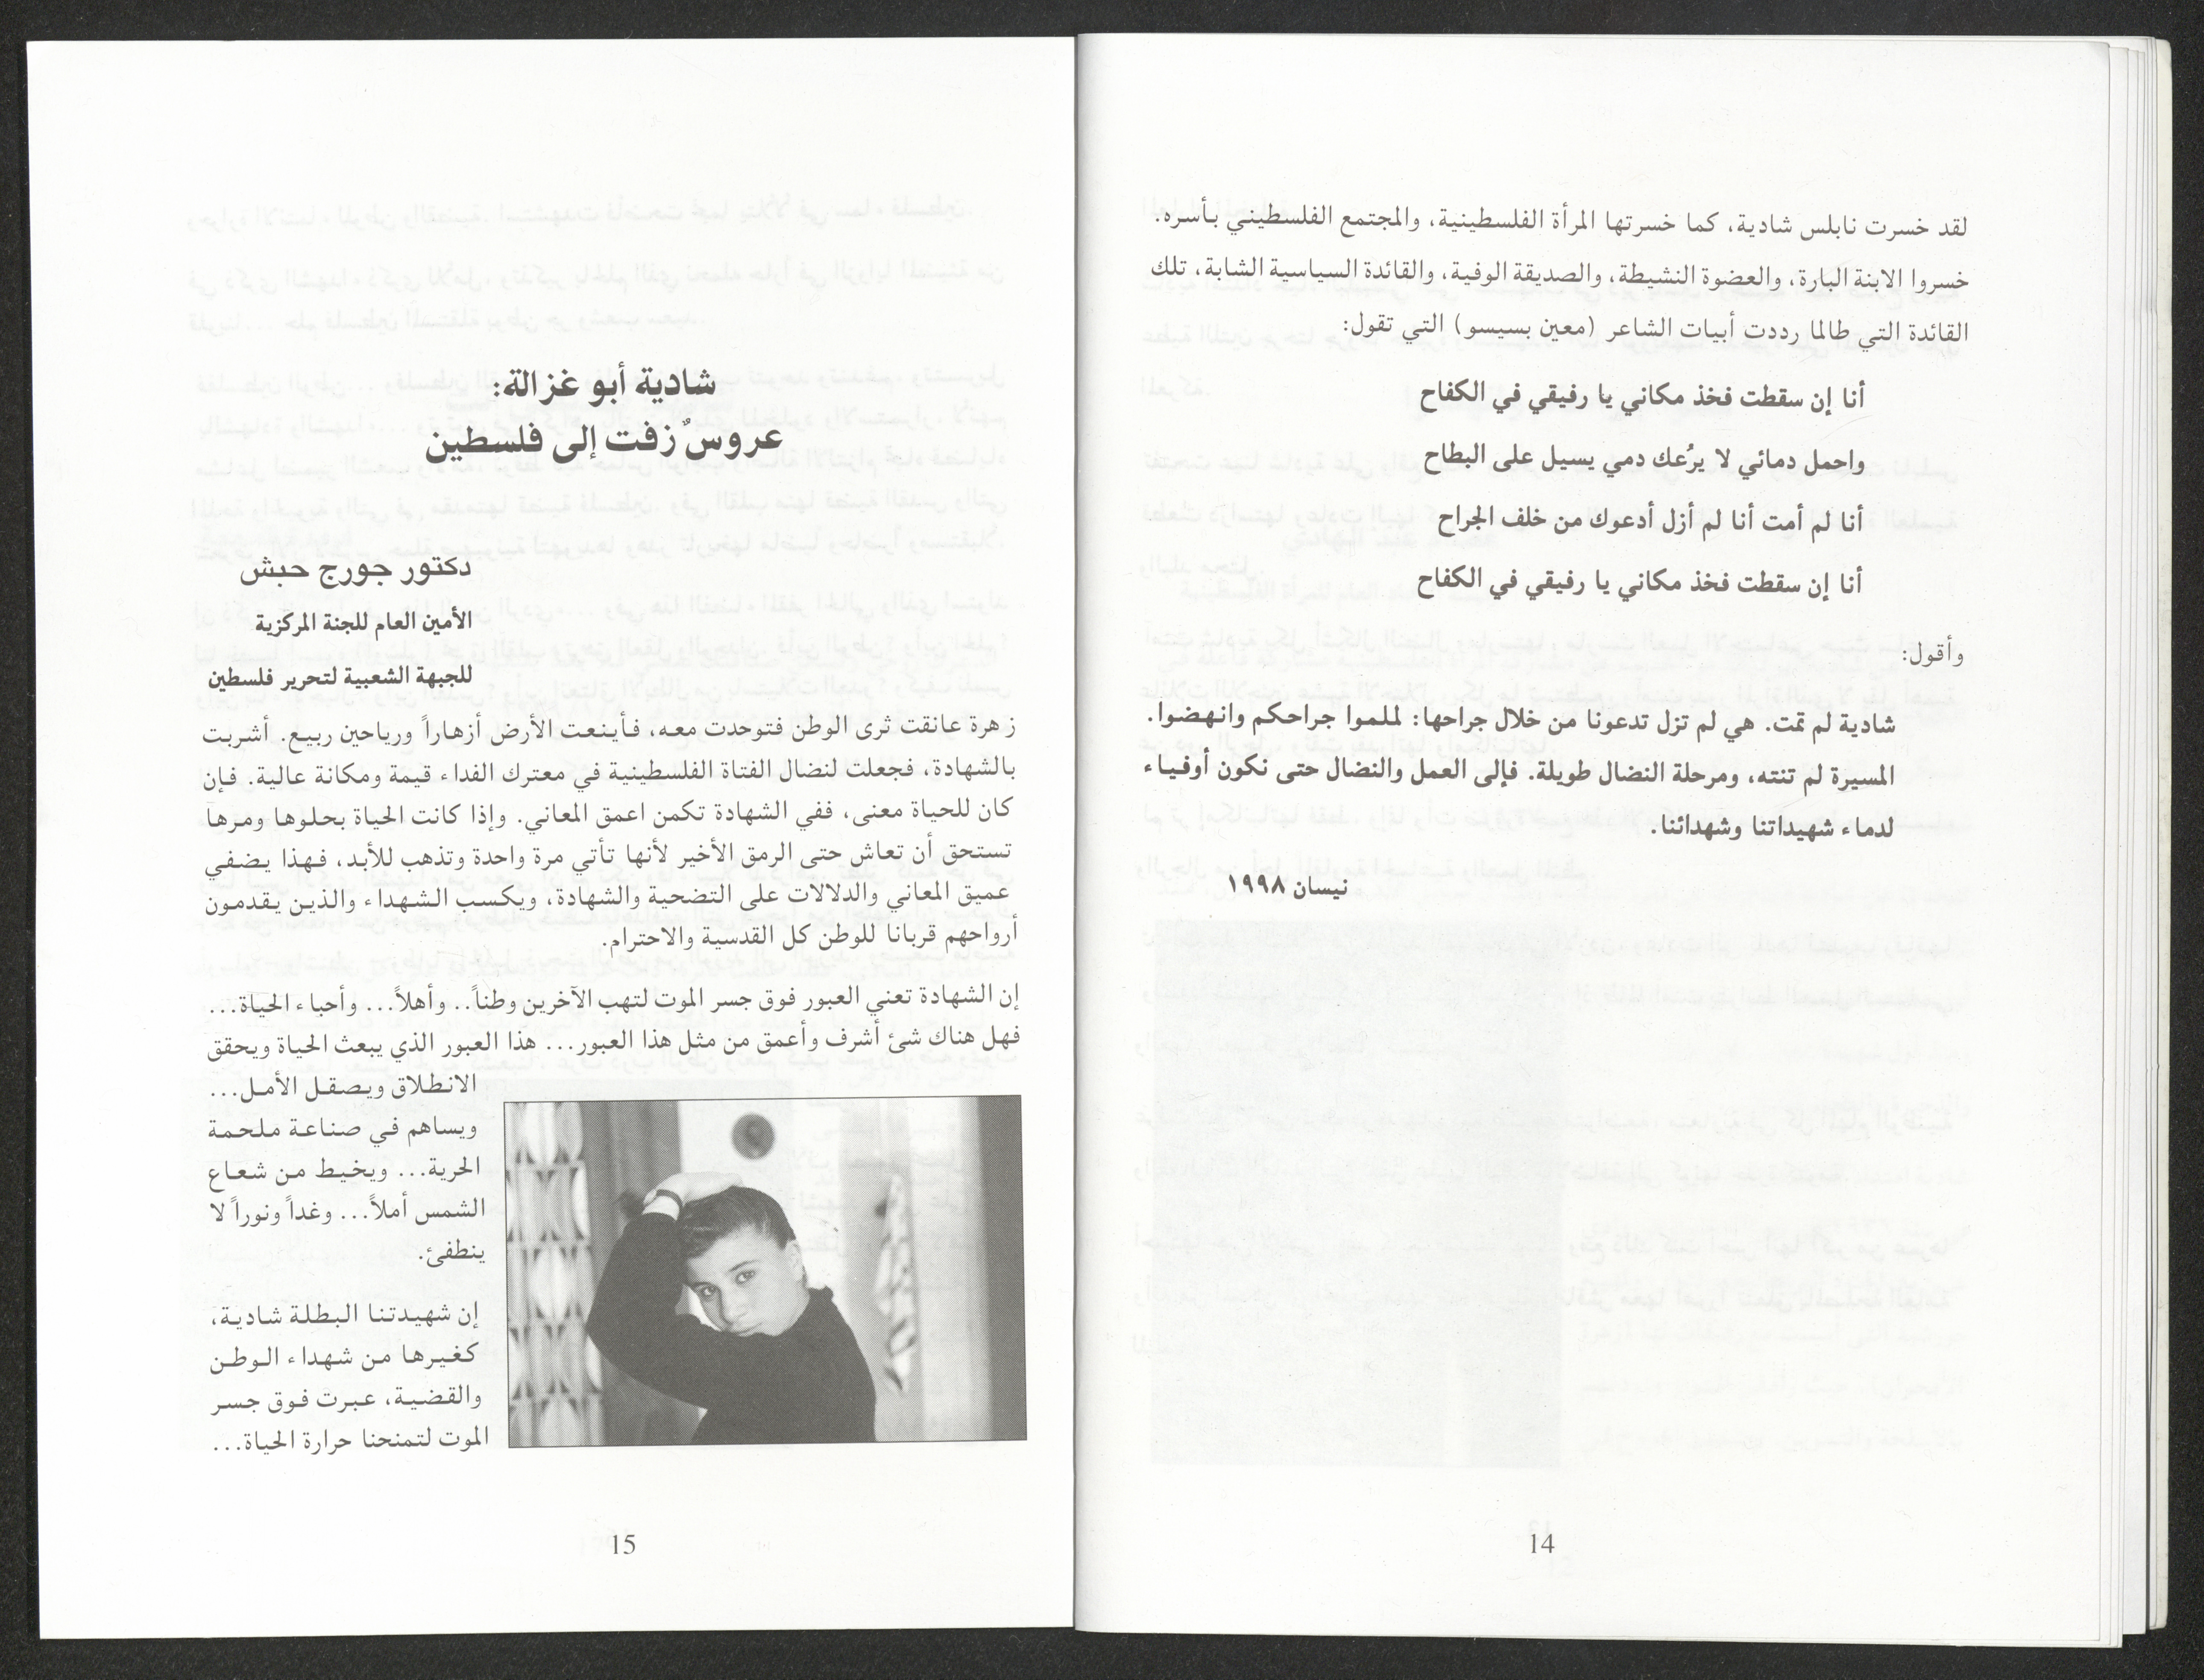 لقد خسرت نابلس شادية، كما خسرتها المرأة الفلسطينية، والمجتمع الفلسطيني بأسره.
خسروا الابنة البارة، والعضوة النشيطة، والصديقة الوفية، والقائدة السياسية الشابة، تلك
القائدة التي طالما رددت أبيات الشاعر (معين بسيسو) التي تقول:
أنا إن سقطت فخذ مكاني يا رفيقي في الكفاح
واحمل دمائي لا يرُعك دمي يسيل على البطاح
أنا لم أمت أنا لم أزل أدعوك من خلف الجراح
أنا إن سقطت فخذ مكاني يا رفيقي في الكفاح
وأقول:
شادية لم تمت. هي لم تزل تدعونا من خلال جراحها: لملموا جراحكم وانهضوا.
المسيرة لم تنته، ومرحلة النضال طويلة. فإلى العمل والنضال حتى نكون أوفياء
لدماء شهيداتنا وشهدائنا.
نيسان ١٩٩٨
14
شادية أبو غزالة:
عروسٌ زفت إلى فلسطين
دكتور جورج حبش
الأمين العام للجنة المركزية
للجبهة الشعبية لتحرير فلسطين
زهرة عانقت ثرى الوطن فتوحدت معه، فأينعت الأرض أزهاراً ورياحين ربيع. أشربت
بالشهادة، فجعلت لنضال الفتاة الفلسطينية في معترك الفداء قيمة ومكانة عالية. فإن
كان للحياة معنى، ففي الشهادة تكمن اعمق المعاني. وإذا كانت الحياة بحلوها ومرها
تستحق أن تعاش حتى الرمق الأخير لأنها تأتي مرة واحدة وتذهب للأبد، فهذا يضفي
عميق المعاني والدلالات على التضحية والشهادة، ويكسب الشهداء والذين يقدمون
أرواحهم قربانا للوطن كل القدسية والاحترام.
إن الشهادة تعني العبور فوق جسر الموت لتهب الآخرين وطناً.. وأهلاً... وأحباء الحياة...
فهل هناك شئ أشرف وأعمق من مثل هذا العبور... هذا العبور الذي يبعث الحياة ويحقق
الانطلاق ويصقل الأمل...
ويساهم في صناعة ملحمة
الحرية... ويخيط من شعاع
الشمس أملاً... وغداً ونوراً لا
ينطفئ.
إن شهيدتنا البطلة شادية،
كغيرها من شهداء الوطن
والقضية، عبرت فوق جسر
الموت لتمنحنا حرارة الحياة...
15